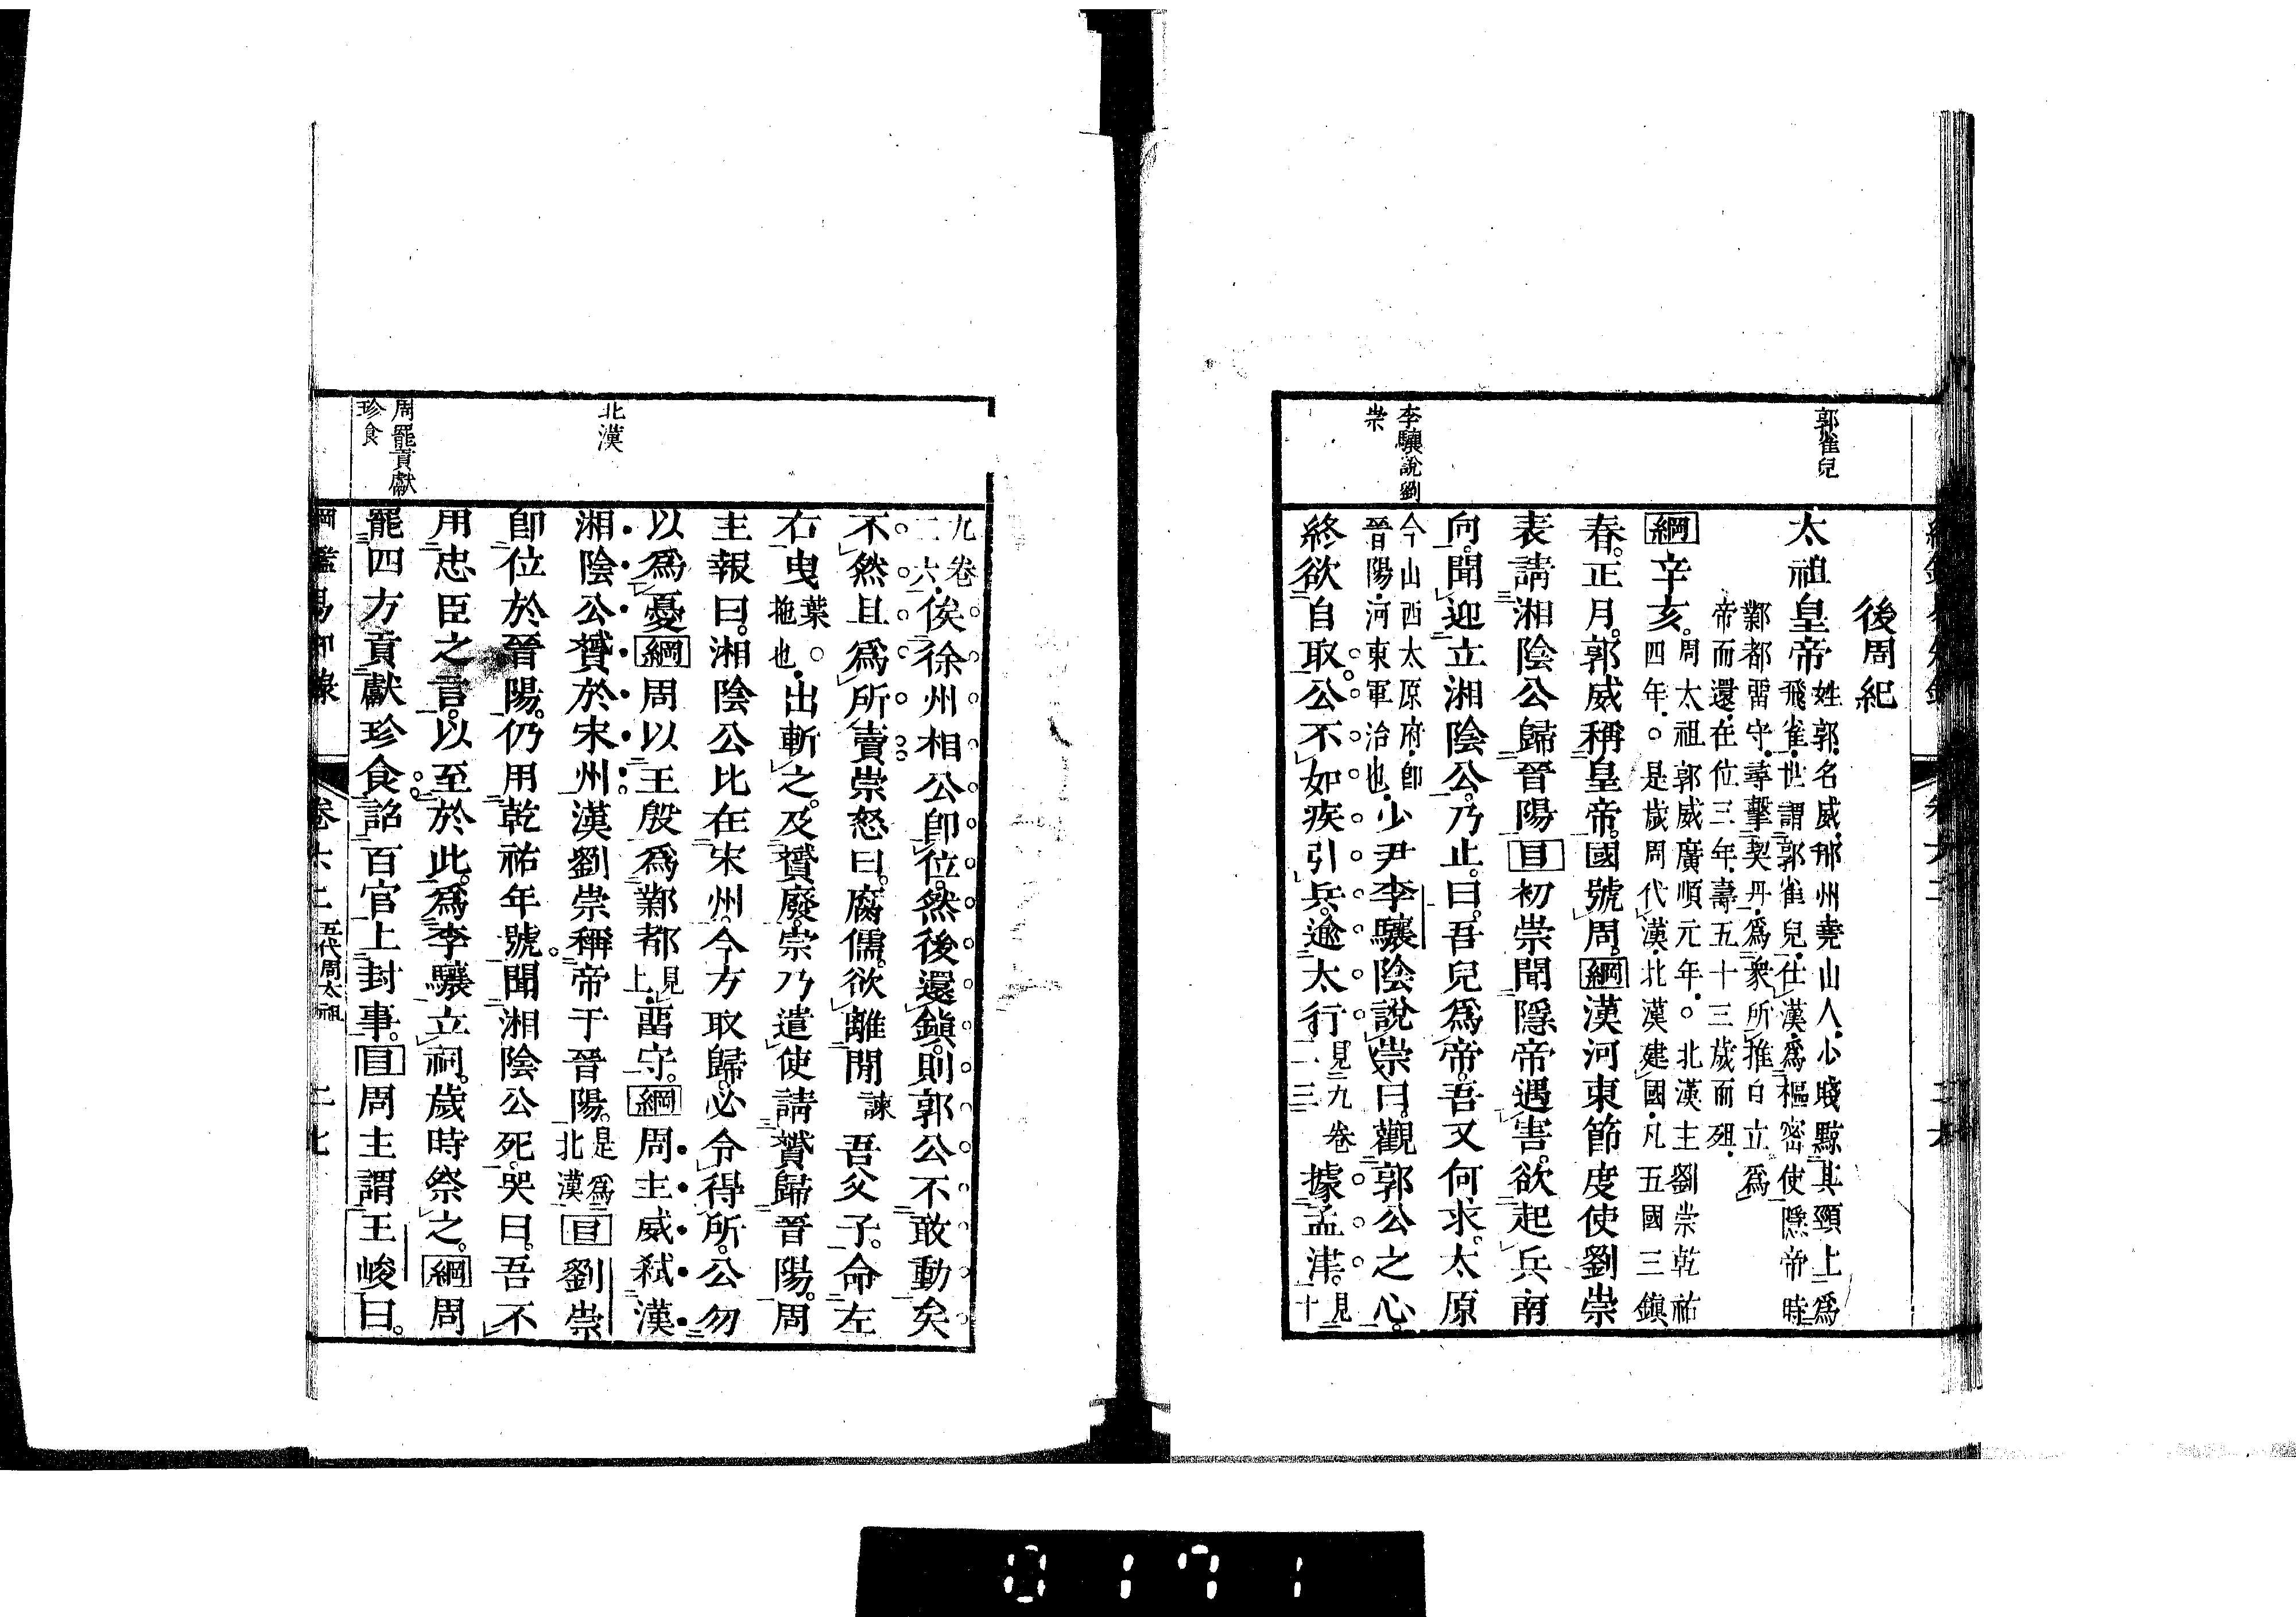 郭雀兒
李驤說劉
崇
後周紀
太祖皇帝姓郭名威邢州堯山人少賤黥其頸上爲
飛雀世謂郭雀兒仕漢爲樞密使隱帝時
鄴都畱守尋擊契丹爲衆所推自立爲
帝而還在位三年壽五十三歲而殂
綱辛亥周太祖郭威廣順元年○北漢主劉崇乾祐
四年○是歲周代漢北漢建國凡五國三鎮
春正月郭威稱皇帝國號周綱漢河東節度使劉崇
表請湘陰公歸晉陽目初崇聞隱帝遇害欲起兵南
向聞迎立湘陰公乃止曰吾兒爲帝吾又何求太原
今山西太原府卽
晉陽河東軍治也少尹李驤陰說崇曰觀郭公之心
終欲自取公不如疾引兵逾太行見九卷
二三據孟津見十
九卷
二六俟徐州相公卽位然後還鎮則郭公不敢動矣
不然且爲所賣崇怒曰腐儒欲離閒諫吾父子命左
右曳葉○
拖也出斬之及贇廢崇乃遣使請贇歸晉陽周
主報曰湘陰公比在宋州今方取歸必令得所公勿
以爲憂綱周以王殷爲鄴都見
上畱守綱周主威弑漢
湘陰公贇於宋州漢劉崇稱帝于晉陽是爲
北漢目劉崇
卽位於晉陽仍用乾祐年號聞湘陰公死哭曰吾不
用忠臣之言以至於此爲李驤立祠歲時祭之綱周
罷四方貢獻珍食詔百官上封事目周主謂王峻曰
北漢
周罷貢獻
珍食
卷六二 五代周太祖 二七
0171